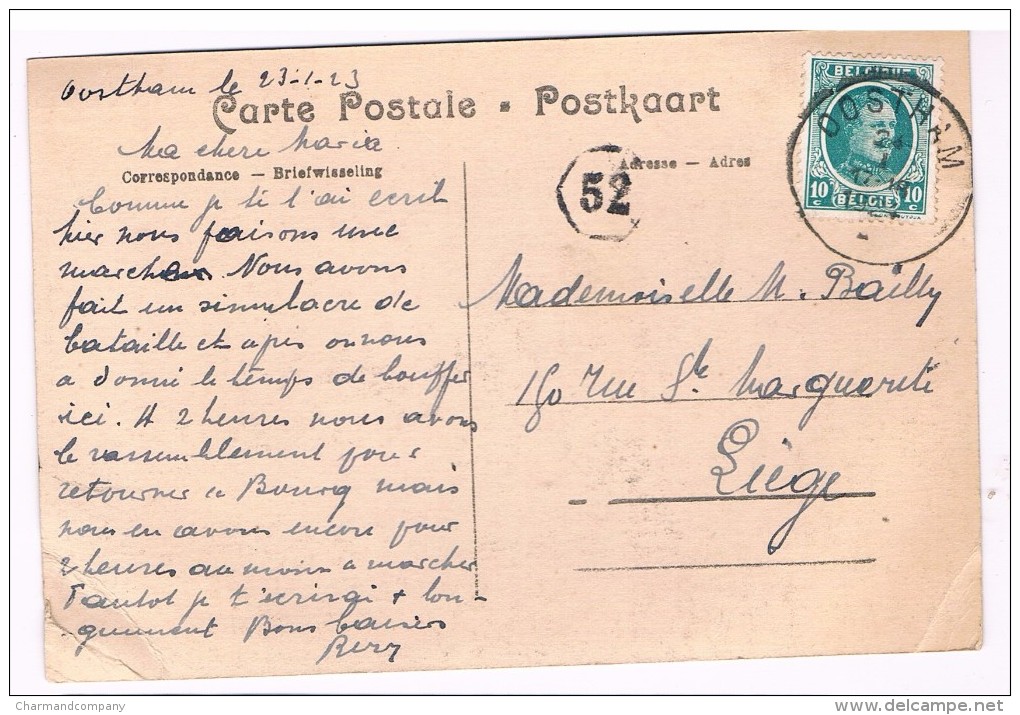 Oostham le 23-1-23
Carte Postale - Postkaart
Ma chere Maria
Correspondance — Briefwisseling
Adresse — Adres
Comme je te l'ai ecrit
hier nous faisons une
marche. Nous avons
fait un simulacre de
bataille et apres on nous
a donné le temps de bouffer
ici. A 2 heures nous avons
le rassemblement pour
retourner a Bourg mais
nous en avons encore pour
2 heures au moins a marcher
Tantot je t'ecrirai + lon-
-guement Bons baisers
52
BELGIQUE
OOSTHAM
10 c BELGIE 10 c
Mademoiselle M. Bailly
150 rue Ste Marguerite
Liège
Charmandcompany
www.delcampe.net